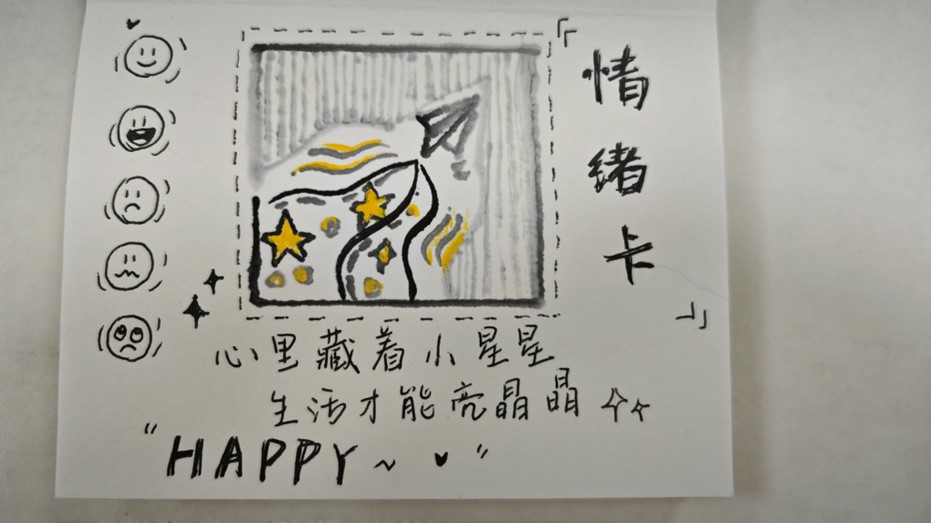 「情绪卡」
心里藏着小星星
生活才能亮晶晶
"HAPPY~"